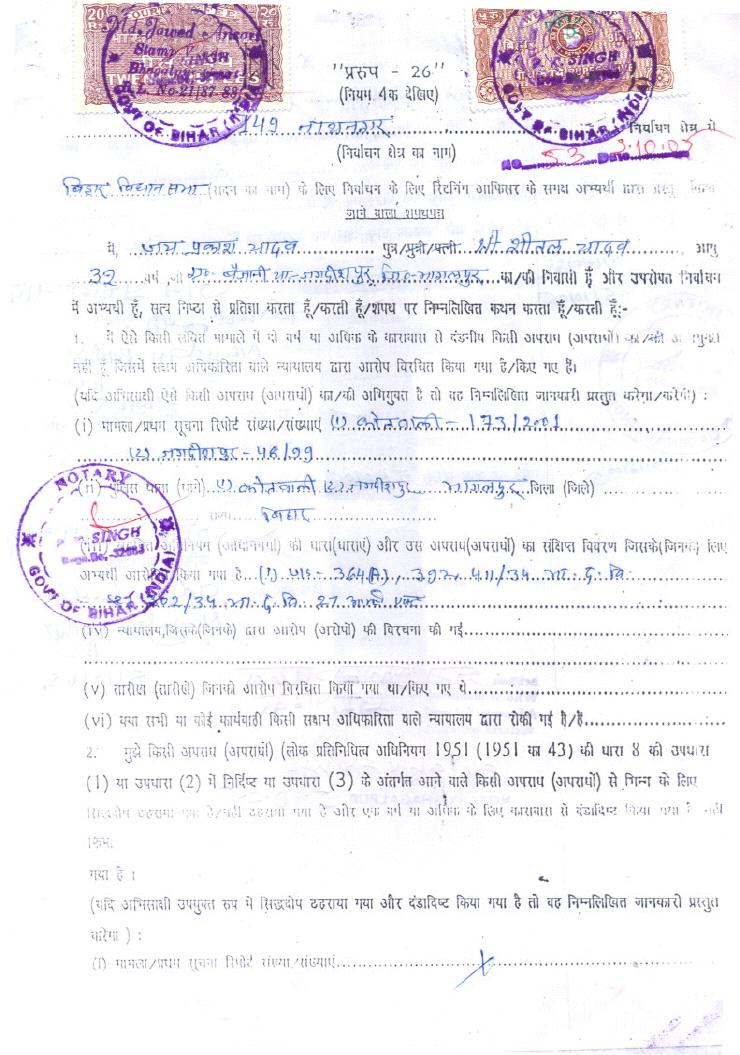 Md. Jawed Ansari
Stamp
Bhagalpur
R.L. No-21/87-88
GOVT OF BIHAR (INDIA)
SINGH
GOVT OF BIHAR (INDIA)
"प्ररुप - 26"
(नियम 4क देखिए)
149 नाथनगर निर्वाचन क्षेत्र से
(निर्वाचन क्षेत्र का नाम)
NO. 53 Date 3.10.05
बिहार विधान सभा (सदन का नाम) के लिए निर्वाचन के लिए रिटर्निंग आफिसर के समक्ष अभ्यर्थी द्वारा प्रस्तुत किया
जाने वाला शपथपत्र
मैं, जय प्रकाश यादव पुत्र/पुत्री/पत्नी श्री शीतल यादव, आयु
32 वर्ष, जो ग्रा०- बैजानी था-जगदीशपुर जिला-भागलपुर का/की निवासी हूँ और उपरोक्त निर्वाचन
में अभ्यर्थी हूँ, सत्य निष्ठा से प्रतिज्ञा करता हूँ/करती हूँ/शपथ पर निम्नलिखित कथन करता हूँ/करती हूँ:-
1. मैं ऐसे किसी लंबित मामले में दो वर्ष या अधिक के कारावास से दंडनीय किसी अपराध (अपराधों) का/की अभियुक्त
नहीं हूँ जिसमें सक्षम अधिकारिता वाले न्यायालय द्वारा आरोप विरचित किया गया है/किए गए हैं।
(यदि अभिसाक्षी ऐसे किसी अपराध (अपराधों) का/की अभियुक्त है तो वह निम्नलिखित जानकारी प्रस्तुत करेगा/करेगी) :
(i) मामला/प्रथम सूचना रिपोर्ट संख्या/संख्याएं (1) कोतवाली - 173/2001
(2) जगदीशपुर - 46/99
(ii) पुलिस थाना (थाने) (1) कोतवाली (2) जगदीशपुर भागलपुर जिला (जिले)
राज्य बिहार
NOTARY
SINGH
GOVT OF BIHAR (INDIA)
(iii) अधिनियम (अधिनियमों) की धारा(धाराएं) और उस अपराध(अपराधों) का संक्षिप्त विवरण जिसके(जिनके) लिए
अभ्यर्थी आरोपित किया गया है (1) धारा- 364(A), 392, 411/34 भा. द. वि.
302/34 भा. द. वि. 27 आर्म्स एक्ट
(iv) न्यायालय,जिसके(जिनके) द्वारा आरोप (आरोपों) की विरचना की गई
(v) तारीख (तारीखें) जिनको आरोप विरचित किया गया था/किए गए थे
(vi) क्या सभी या कोई कार्यवाही किसी सक्षम अधिकारिता वाले न्यायालय द्वारा रोकी गई है/हैं
2. मुझे किसी अपराध (अपराधों) (लोक प्रतिनिधित्व अधिनियम 1951 (1951 का 43) की धारा 8 की उपधारा
(1) या उपधारा (2) में निर्दिष्ट या उपधारा (3) के अंतर्गत आने वाले किसी अपराध (अपराधों) से भिन्न के लिए
सिद्धदोष ठहराया गया है/नहीं ठहराया गया है और एक वर्ष या अधिक के लिए कारावास से दंडादिष्ट किया गया है नहीं
किया
गया है ।
(यदि अभिसाक्षी उपयुक्त रुप में सिद्धदोष ठहराया गया और दंडादिष्ट किया गया है तो वह निम्नलिखित जानकारी प्रस्तुत
करेगा ) :
(i) मामला/प्रथम सूचना रिपोर्ट संख्या/संख्याएं X